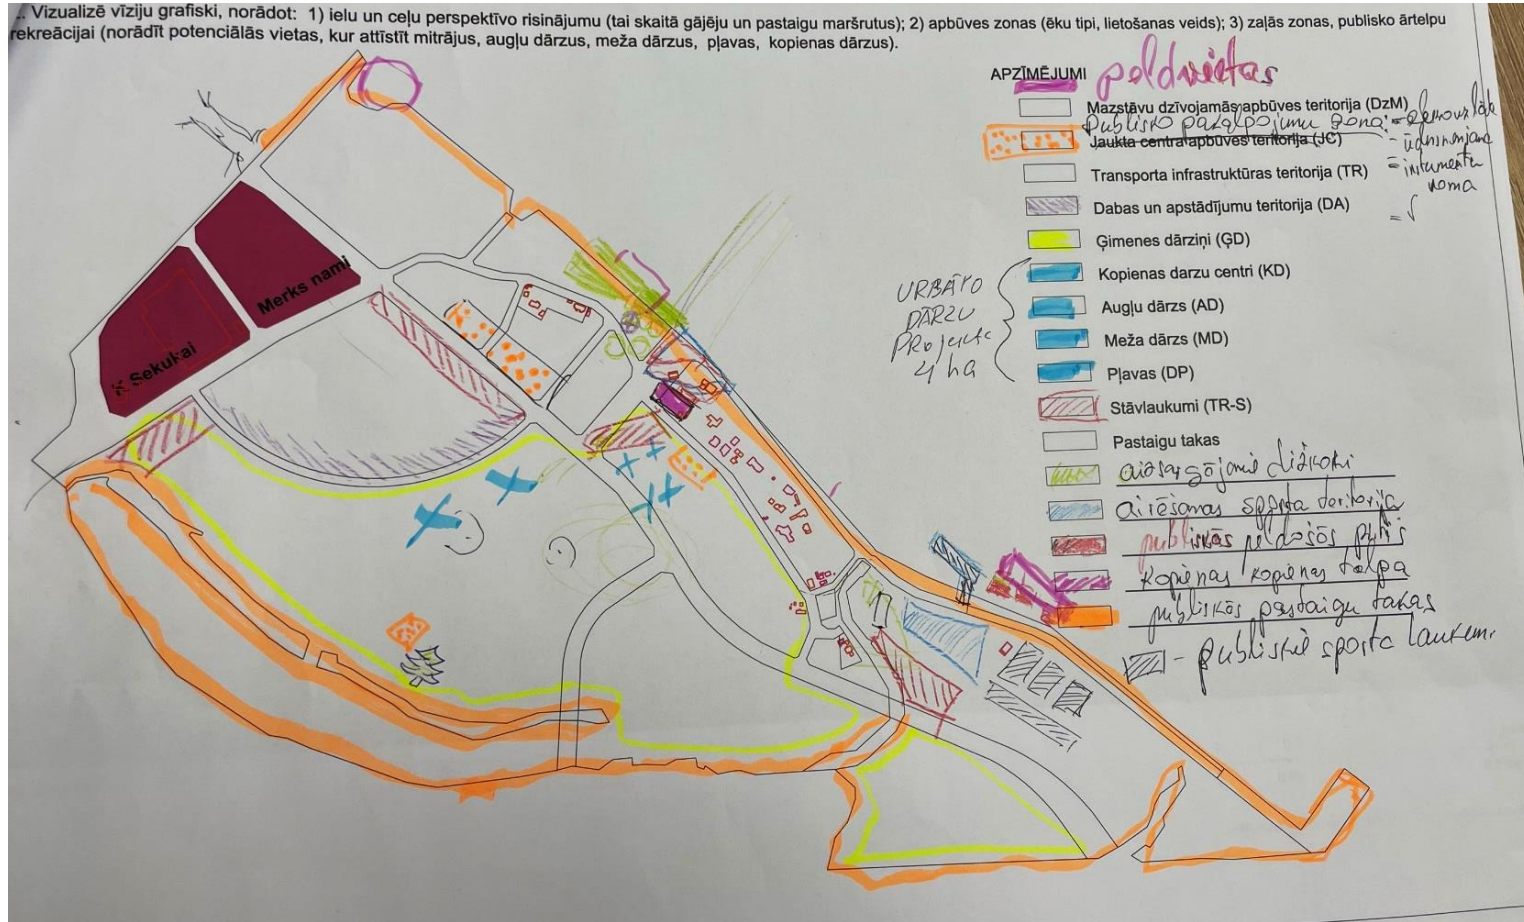 .. Vizualizē vīziju grafiski, norādot: 1) ielu un ceļu perspektīvo risinājumu (tai skaitā gājēju un pastaigu maršrutus); 2) apbūves zonas (ēku tipi, lietošanas veids); 3) zaļās zonas, publisko ārtelpu
rekreācijai (norādīt potenciālās vietas, kur attīstīt mitrājus, augļu dārzus, meža dārzus, pļavas, kopienas dārzus).
APZĪMĒJUMI peldvietas
Mazstāvu dzīvojamās apbūves teritorija (DzM)
Publisko pakalpojumu zona:
Jaukta centra apbūves teritorija (JC)
- ūdensņemjana
Transporta infrastruktūras teritorija (TR)
= instrumentu
noma
Dabas un apstādījumu teritorija (DA)
Ģimenes dārziņi (ĢD)
Kopienas darzu centri (KD)
Augļu dārzs (AD)
Meža dārzs (MD)
Pļavas (DP)
URBĀTO
DĀRZU
PROJEKTS
4 ha
Stāvlaukumi (TR-S)
Pastaigu takas
aizsargājamie dižkoki
airēšanas sporta teritorija
publiskās peldošās pirtis
Kopienas kopienas telpa
publiskās pastaigu takas
- publiskie sporta laukumi
Merks nami
K Sekukai